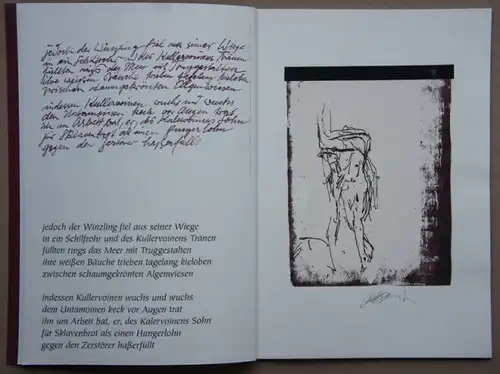 jedoch der Winzling fiel aus seiner Wiege
in ein Schilfrohr und des Kullervoinens Tränen
füllten rings das Meer mit Truggestalten
ihre weißen Bäuche trieben tagelang kieloben
zwischen schaumgekrönten Algenwiesen
indessen Kullervoinen wuchs und wuchs
dem Untamoinen keck vor Augen trat
ihn um Arbeit bat, er, des Kalervoinens Sohn
für Sklavenbrot als einen Hungerlohn
gegen den Zerstörer haßerfüllt
jedoch der Winzling fiel aus seiner Wiege
in ein Schilfrohr und des Kullervoinens Tränen
füllten rings das Meer mit Truggestalten
ihre weißen Bäuche trieben tagelang kieloben
zwischen schaumgekrönten Algenwiesen
indessen Kullervoinen wuchs und wuchs
dem Untamoinen keck vor Augen trat
ihn um Arbeit bat, er, des Kalervoinens Sohn
für Sklavenbrot als einen Hungerlohn
gegen den Zerstörer haßerfüllt